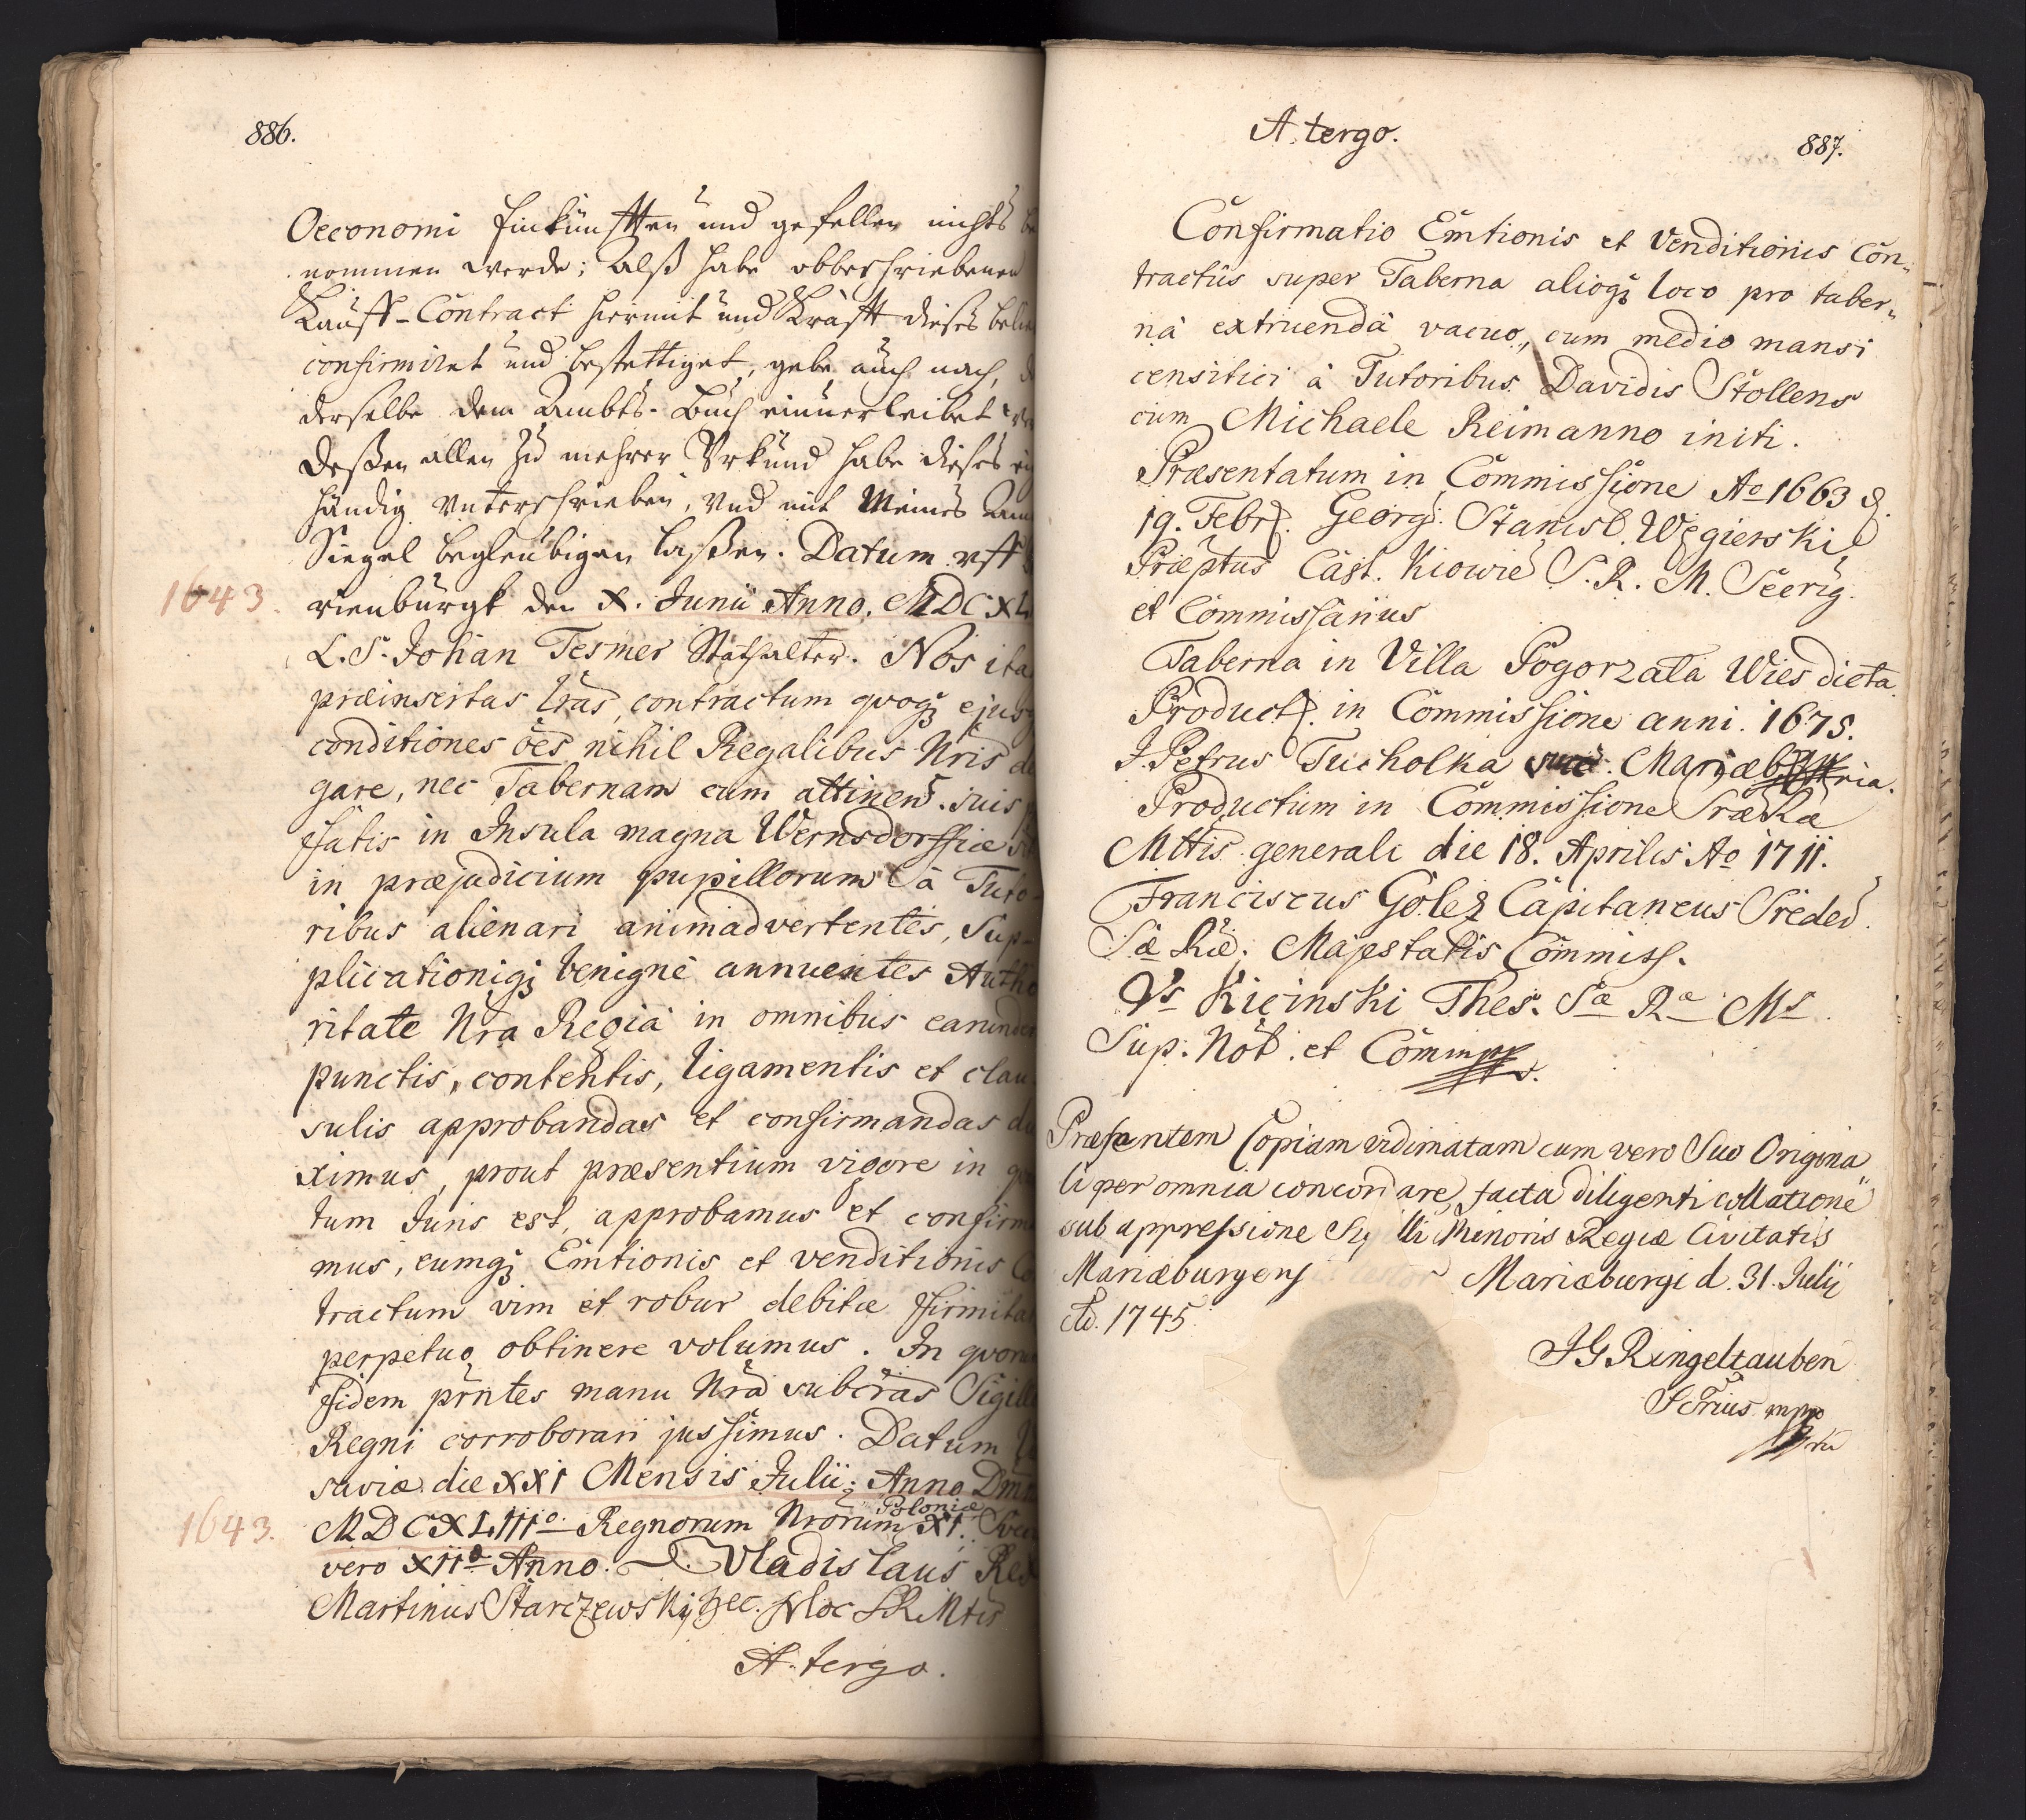 886.
Oeconomi Einkünfften und gefellen nichts be
nommen werde; Alß habe obbeschriebenen
Kauff-Contract hiermit und Krafft dieses belie
confirmiret und bestettiget, gebe auch nach, d
derselbe dem Ambts-Buch einverleibet we
Deßen allen zu mehrer Vrkund habe dieses ei
händig unterschrieben, und mit Meines Am
Siegel begleubigen laßen. Datum uff
1643. rienburgk den X. Junii Anno. MDCXL
L.S. Johan Tesmer Stathalter. Nos ita
præinsertas Lras, contractum qvoqz ejus
conditiones ōes nihil Regalibus Nris de
gare, nec Tabernam cum attinen. suis
ssatis in Insula magna Wernsdorffiæ
in præjudicium pupillorum à Tuto-
ribus alienari animadvertentes, Sup-
plicationiqz benignè annuentes Autho
ritate Nra Regiâ in omnibus earundem
punctis, contentis, ligamentis et clau
sulis approbandas et confirmandas du
ximus, prout præsentium vigore in qvan
tum Juris est, approbamus et confirma
mus, eumqz Emtionis et venditionis Co
tractum vim et robur debitæ ffirmitat
perpetuo obtinere volumus. In qvorum
ffidem prntes manu Nrâ subcras Sigillo
Regni corroborari jussimus. Datum
saviæ die XXI Mensis Julii; Anno Dmni
1643. MDCXLIIIo. Regnorum Nrorum Poloniæ XI. Svec
vero XIIo Anno. Vladislaus Rex
Martinus Starczewskij Sec. SRMtis
A. tergo.
A. tergo.
887.
Confirmatio Emtionis et Venditionis Con„
tractus super Taberna alioqz loco pro taber„
nâ extruendâ vacuo, cum medio mansi
censitici à Tutoribus Davidis Stollens
cum Michaele Reimanno initi.
Præsentatum in Commissione Ao 1663 d.
19. Febr. Georg: Stanisl. Węgierski
Præptus Cast. Kiowiē S.R.M. Secrig.
et Commissarius
Taberna in Villa Pogorzala Wies dicta
Product. in Commissione anni. 1675.
J. Petrus Tucholka
Productum in Commissione Sræ Ræ
Mttis generali die 18. Aprilis Ao 1711.
Franciscus Golcz Capitaneus Sreded.
Sæ Ræ. Majestatis Commiss.
Kicinski Thes. Sæ Ræ Ms
Sup. Not. et Commiss.
Præsentem Copiam vidimatam cum vero Suo Origina
li per omnia concordare, facta diligenti collatione
sub appressione Sigilli Minoris Regiæ Civitatis
Mariæburgens Mariæburgi d. 31. Julij
Ao. 1745.
JG Ringeltauben
Srius mpp